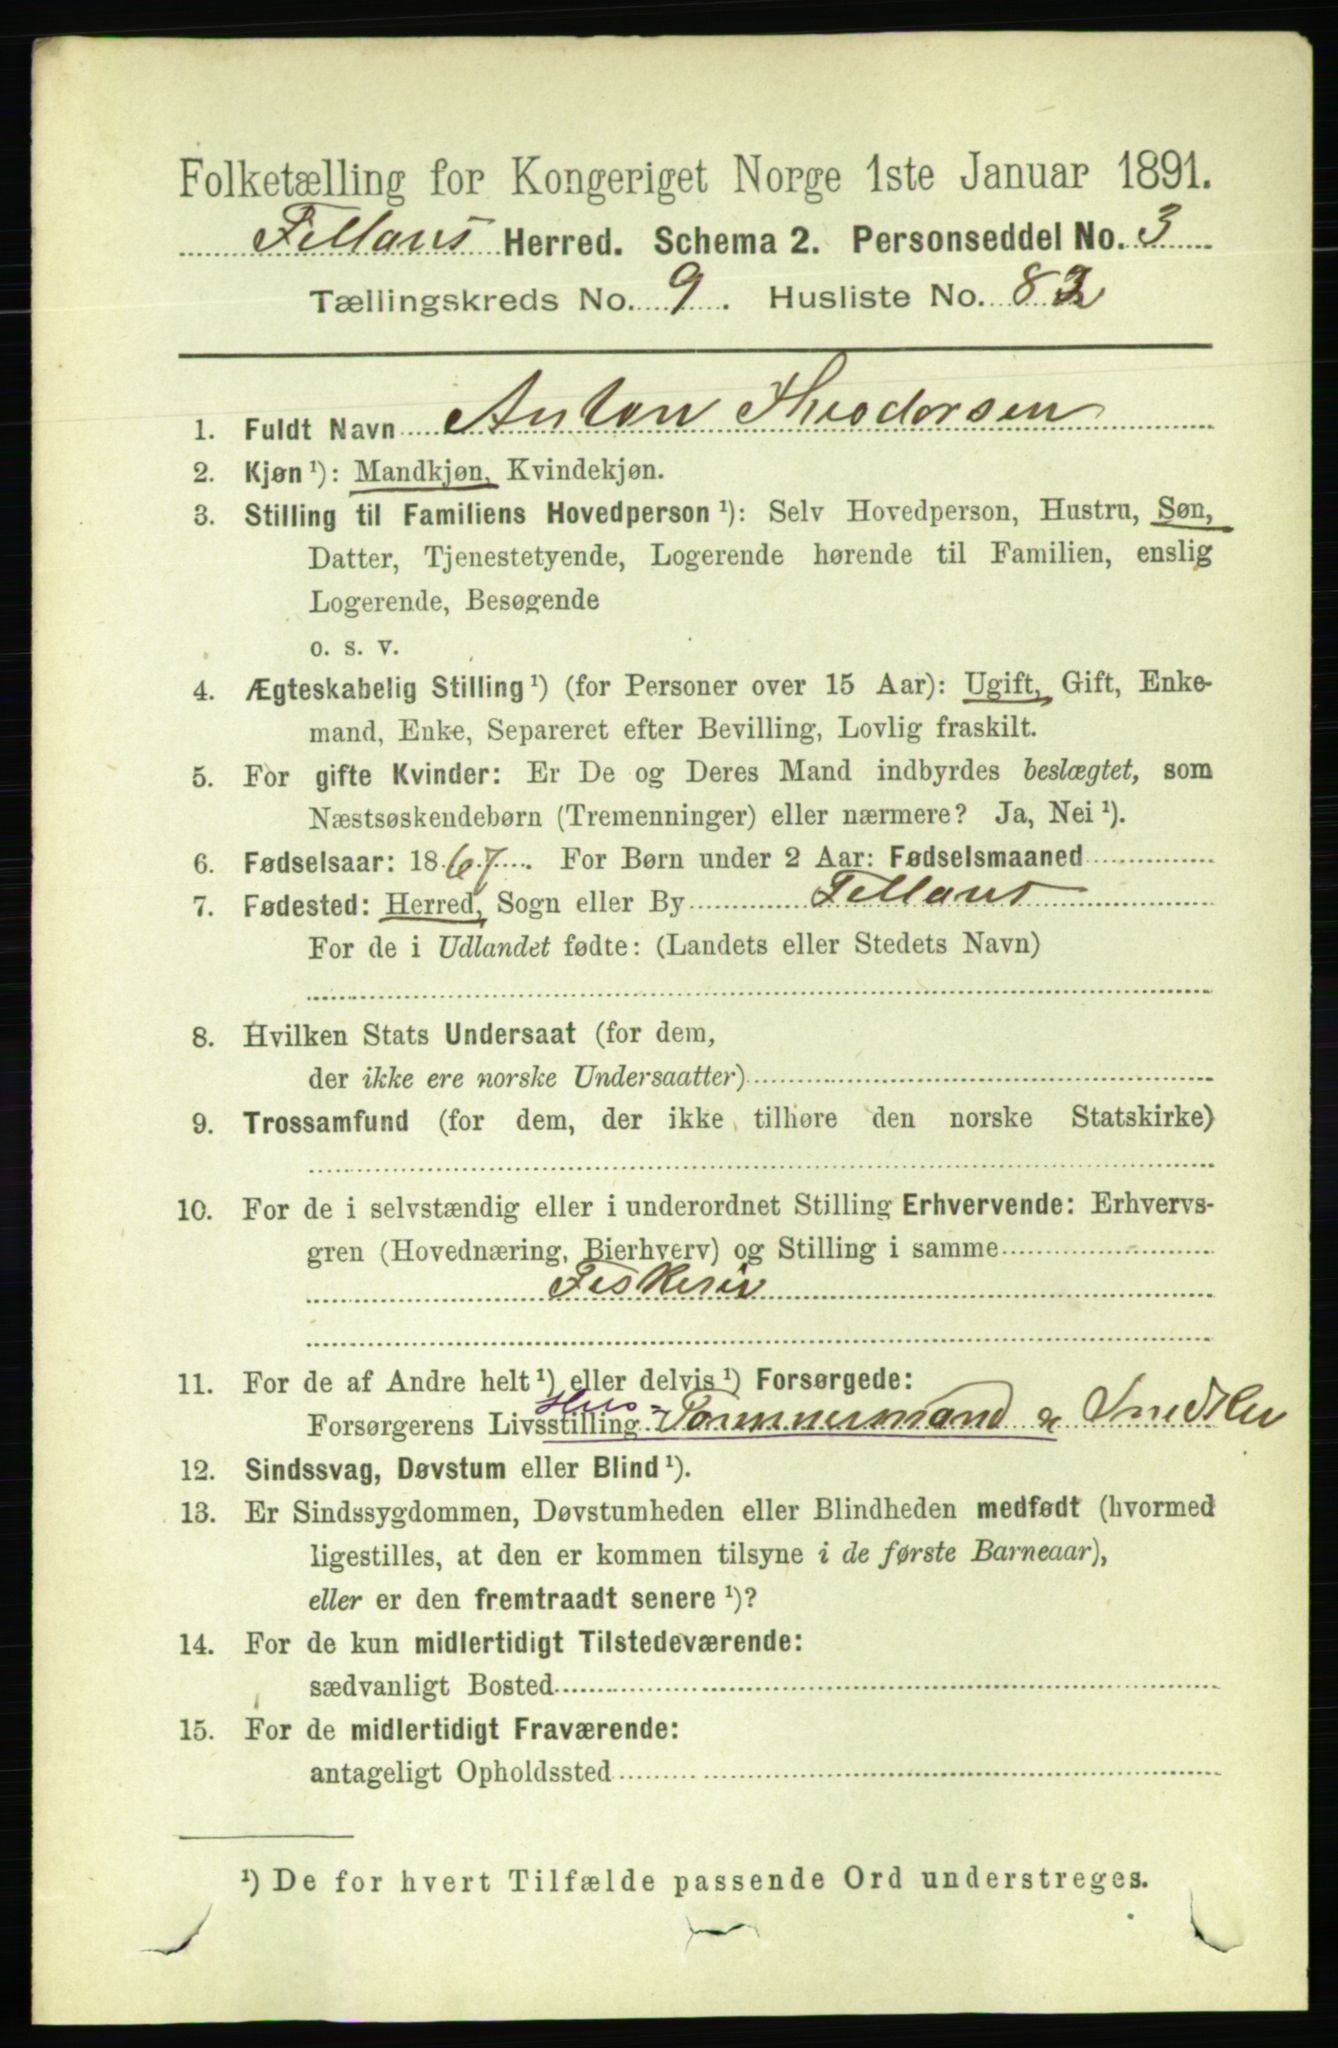 Folketælling for Kongeriget Norge 1ste Januar 1891.
Fillans Herred. Schema 2. Personseddel No. 3
Tællingskreds No. 9. Husliste No. 82
1. Fuldt Navn Anton Theodorsen
2. Kjøn ¹): Mandkjøn, Kvindekjøn.
3. Stilling til Familiens Hovedperson ¹): Selv Hovedperson, Hustru, Søn,
Datter, Tjenestetyende, Logerende hørende til Familien, enslig
Logerende, Besøgende
o. s. v.
4. Ægteskabelig Stilling ¹) (for Personer over 15 Aar): Ugift, Gift, Enke-
mand, Enke, Separeret efter Bevilling, Lovlig fraskilt.
5. For gifte Kvinder: Er De og Deres Mand indbyrdes beslægtet, som
Næstsøskendebørn (Tremenninger) eller nærmere? Ja, Nei ¹).
6. Fødselsaar: 1867. For Børn under 2 Aar: Fødselsmaaned
7. Fødested: Herred, Sogn eller By Fillans
For de i Udlandet fødte: (Landets eller Stedets Navn)
8. Hvilken Stats Undersaat (for dem,
der ikke ere norske Undersaatter)
9. Trossamfund (for dem, der ikke tilhøre den norske Statskirke)
10. For de i selvstændig eller i underordnet Stilling Erhvervende: Erhvervs-
gren (Hovednæring, Bierhverv) og Stilling i samme
Fiskeri
11. For de af Andre helt ¹) eller delvis ¹) Forsørgede:
Hus-
Forsørgerens Livsstilling Tømmermand &
12. Sindssvag, Døvstum eller Blind ¹).
13. Er Sindssygdommen, Døvstumheden eller Blindheden medfødt (hvormed
ligestilles, at den er kommen tilsyne i de første Barneaar),
eller er den fremtraadt senere ¹)?
14. For de kun midlertidigt Tilstedeværende:
sædvanligt Bosted
15. For de midlertidigt Fraværende:
antageligt Opholdssted
¹) De for hvert Tilfælde passende Ord understreges.